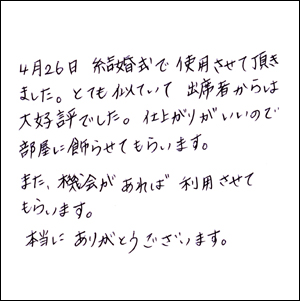 4月26日 結婚式で使用させて頂き
ました。とても似ていて 出席者からは
大好評でした。仕上がりがいいので
部屋に飾らせてもらいます。
また、機会があれば 利用させて
もらいます。
本当に ありがとうございます。